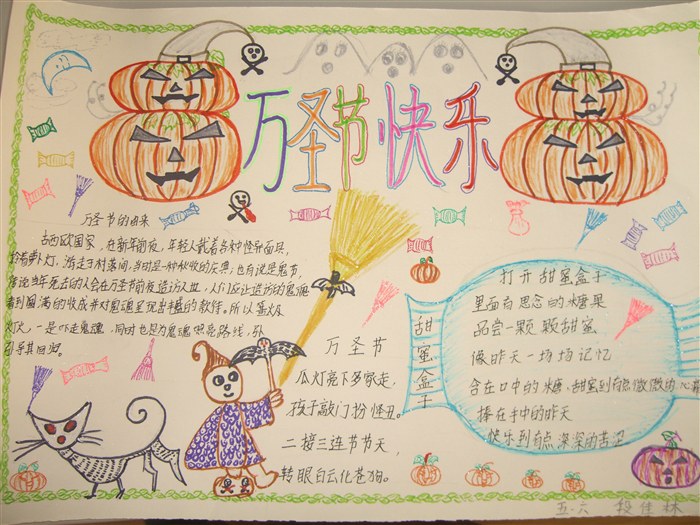 万圣节快乐
万圣节的由来
古西欧国家，在新年前夜，年轻人戴着各种怪异面具，
拎着萝卜灯，游走于村落间，当时是一种秋收的庆典；也有说是鬼节，
传说当年死去的人会在万圣前夜造访人世，人们应让造访的鬼魂
看到圆满的收成并对鬼魂呈现出丰盛的款待。所以篝火
灯火，一是吓走鬼魂，同时也是为鬼魂照亮路线，
引导其回归。
万圣节
瓜灯亮下多家走，
孩子敲门扮怪丑。
二接三连节节天，
转眼白云化苍狗。
甜蜜盒子
打开甜蜜盒子
里面有思念的糖果
品尝一颗颗甜蜜
像昨天一场场记忆
含在口中的糖、甜蜜到有点微微的
捧在手中的昨天
快乐到有点深深的苦涩
五.六 段佳林